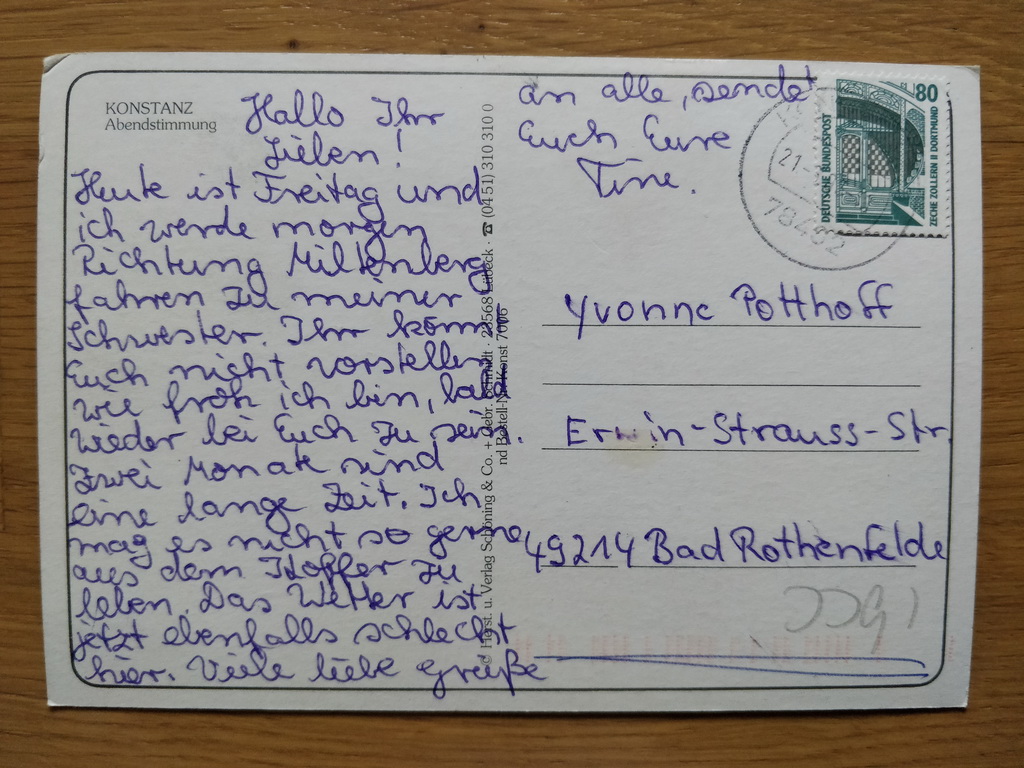 KONSTANZ
Abendstimmung
Hallo Ihr
Lieben!
Heute ist Freitag und
ich werde morgen
Richtung Miltenberg
fahren zu meiner
Schwester. Ihr könnt
Euch nicht vorstellen
wie froh ich bin, bald
wieder bei Euch zu sein.
Zwei Monate sind
eine lange Zeit. Ich
mag es nicht so gerne
aus dem Koffer zu
leben. Das Wetter ist
jetzt ebenfalls schlecht
hier. Viele liebe Grüße
an alle, sendet
Euch Eure
Tine.
© Horst. u. Verlag Schöning & Co. + Gebr. Schmidt · 23568 Lübeck · ☎ (04 51) 310 310 0
nd Bestell-Nr. Konst 7006
DEUTSCHE BUNDESPOST
80
ZECHE ZOLLERN II DORTMUND
21-
78462
Yvonne Potthoff
Erwin-Strauss-Str.
49214 Bad Rothenfelde